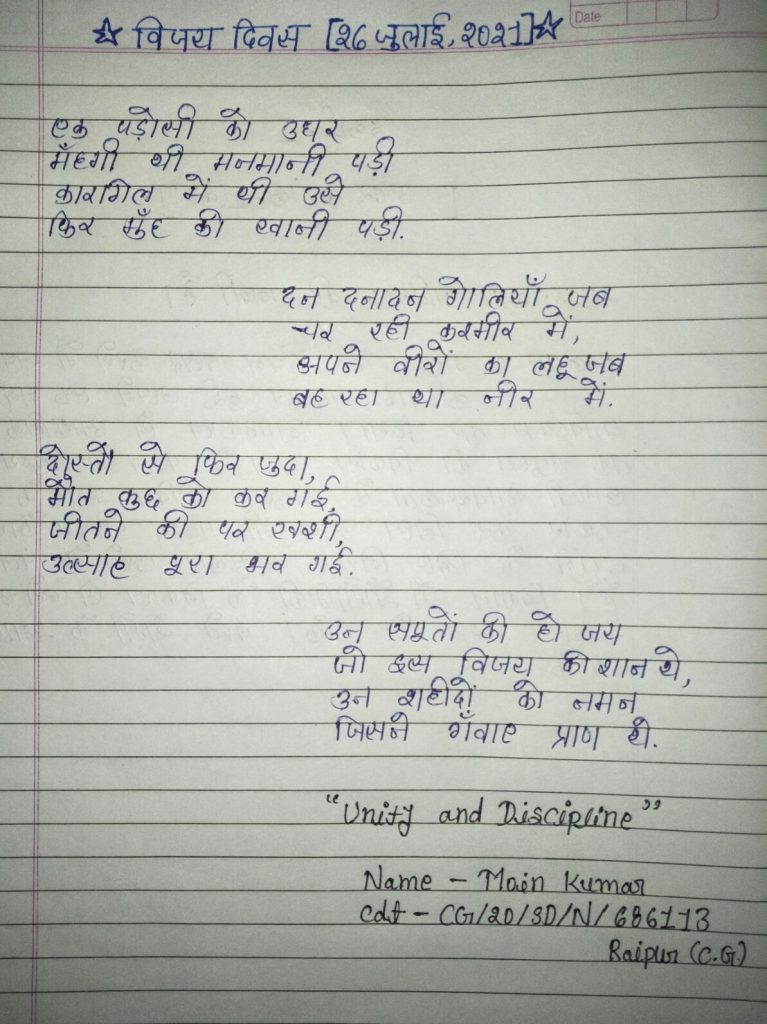 Date
☆ विजय दिवस [26 जुलाई, 2021] ☆
एक पड़ोसी को उधर
मँहगी थी मनमानी पड़ी
कारगिल में थी उसे
फिर मुँह की खानी पड़ी.
दन दनादन गोलियाँ जब
चर रही कश्मीर में,
अपने वीरों का लहू जब
बह रहा था नीर में.
दोस्तों से फिर जुदा,
मौत कुछ को कर गई,
जीतने की पर खुशी,
उत्साह पूरा भर गई.
उन सपूतों की हो जय
जो इस विजय की शान थे,
उन शहीदों को नमन
जिसने गँवाए प्राण थे.
"Unity and Discipline"
Name - Main Kumar
Cdt - CG/20/SD/N/686113
Raipur (C.G.)